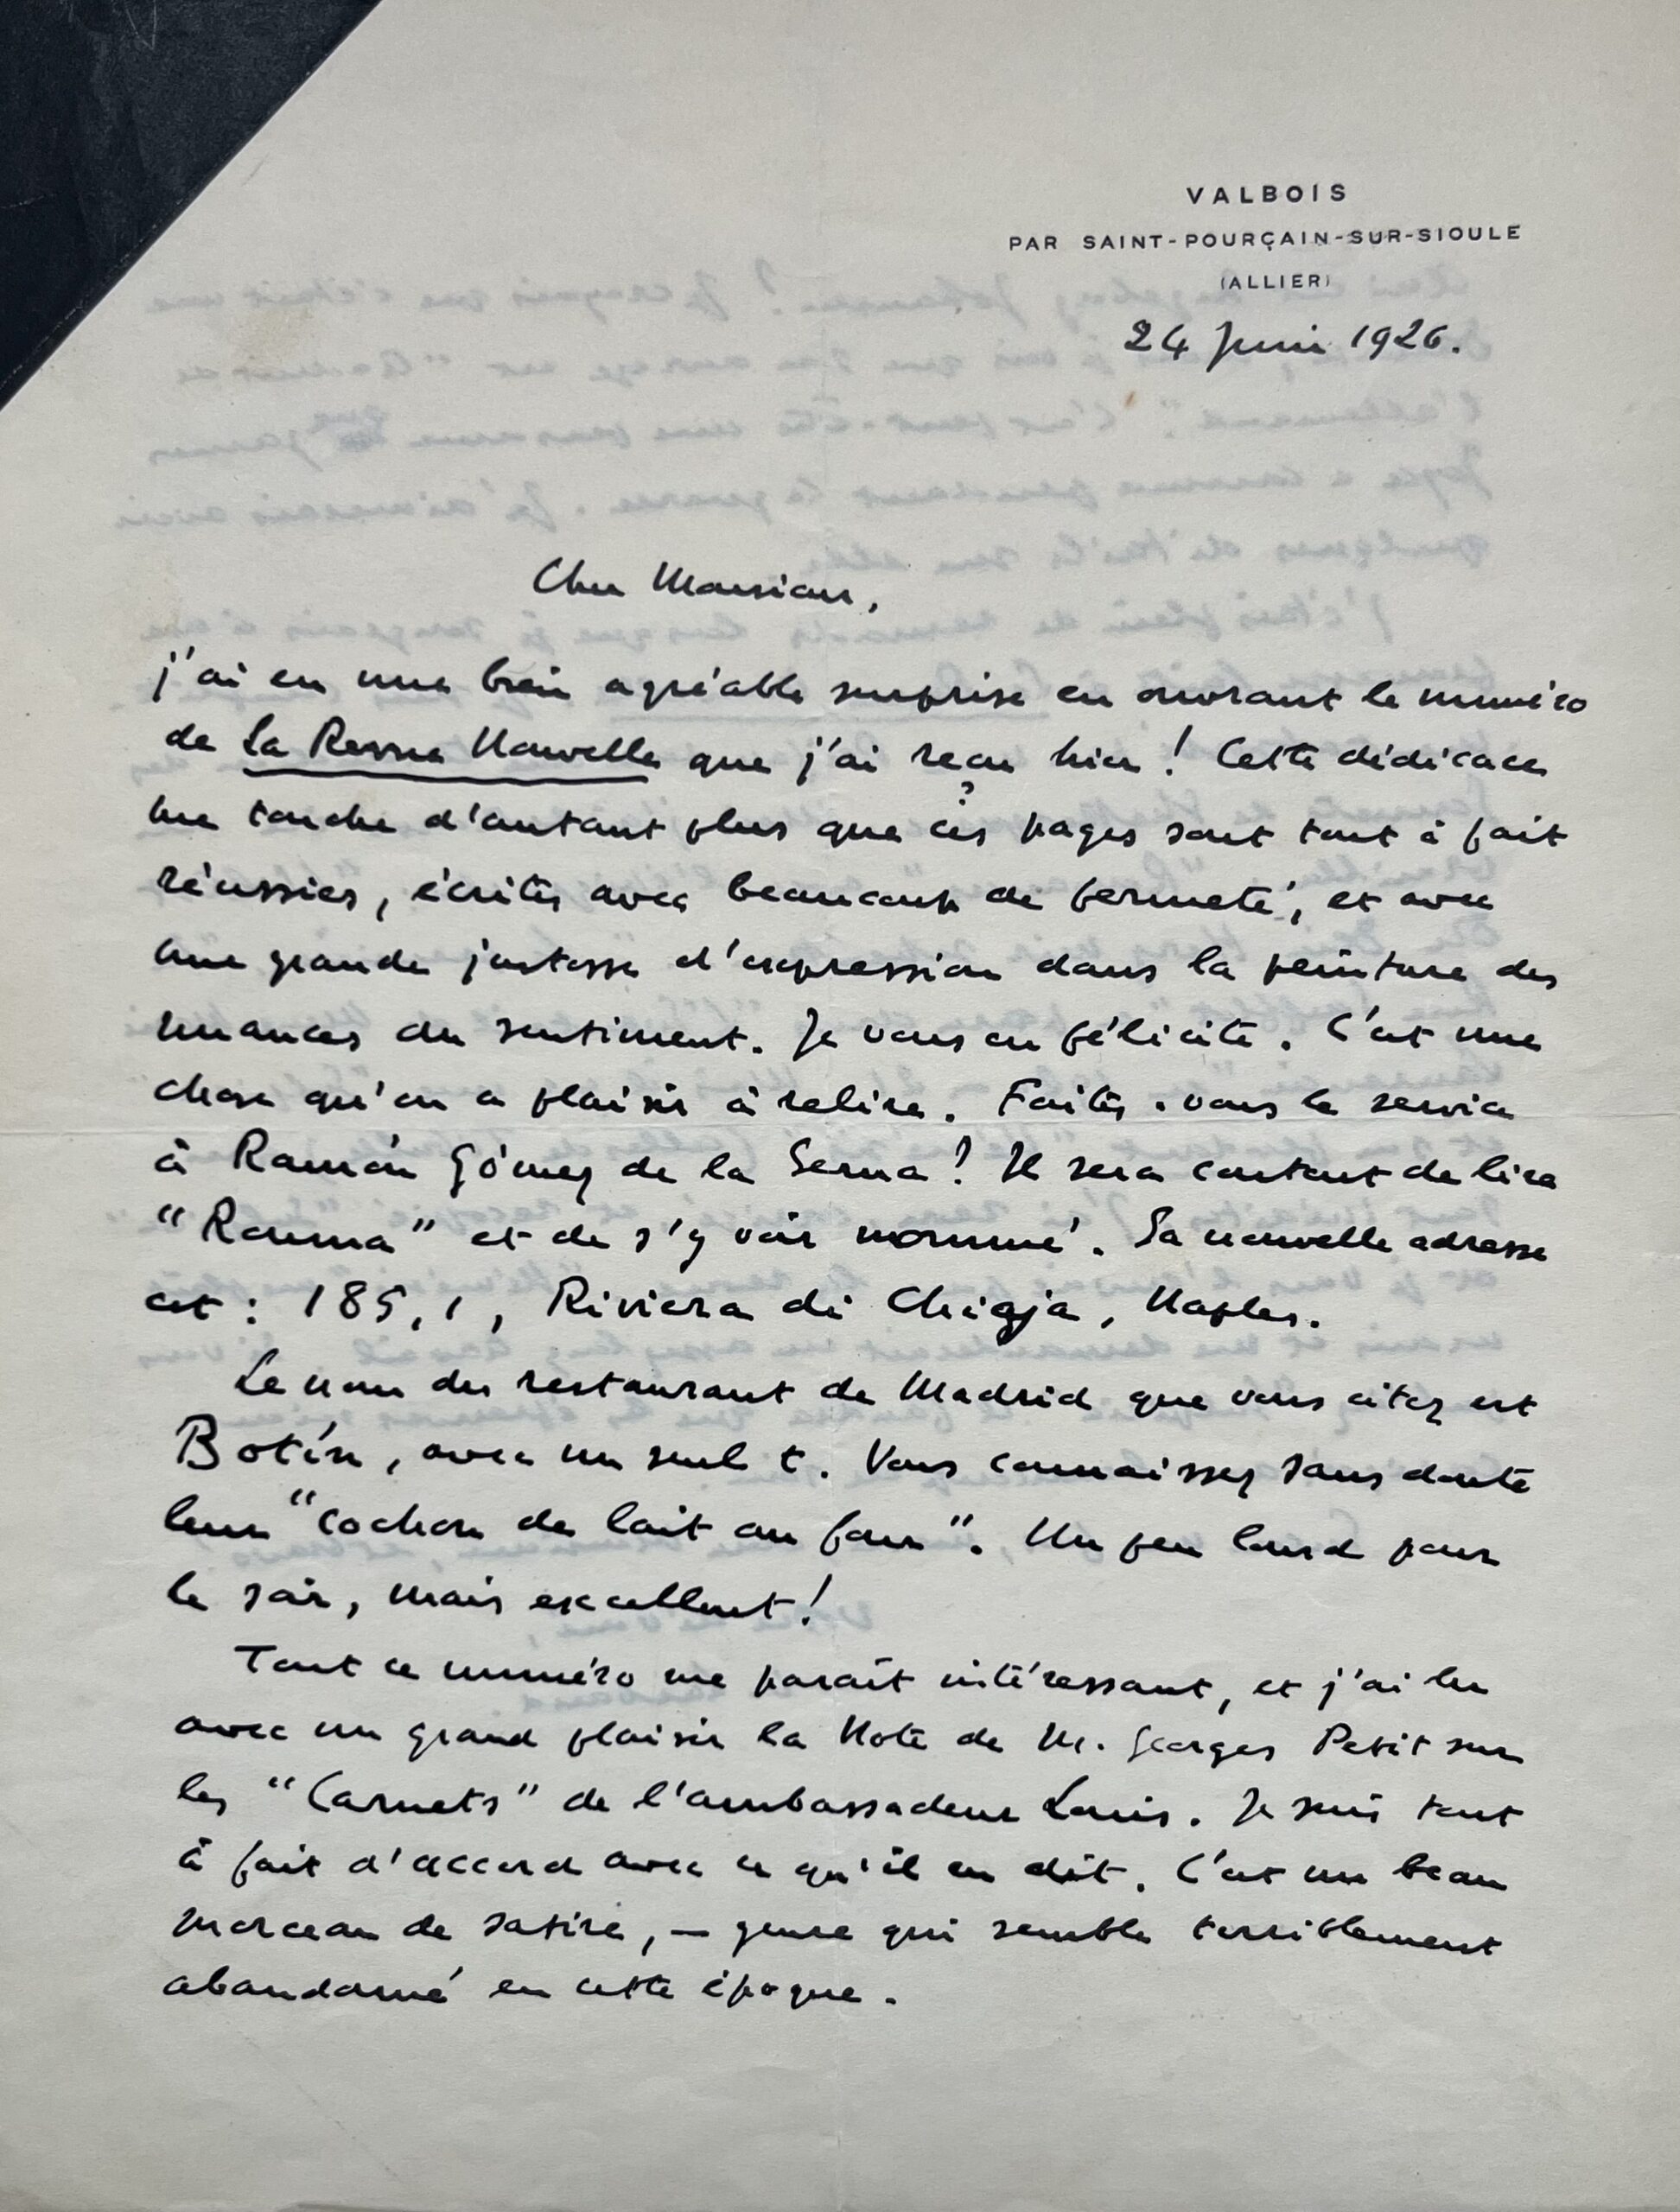 VALBOIS
PAR SAINT-POURÇAIN-SUR-SIOULE
(ALLIER)
24 Juin 1926.
Cher Monsieur,
j'ai eu une bien agréable surprise en ouvrant le numéro
de La Revue Nouvelle que j'ai reçu hier ! Cette dédicace
me touche d'autant plus que ces pages sont tout à fait
réussies, écrites avec beaucoup de fermeté, et avec
une grande justesse d'expression dans la peinture des
nuances du sentiment. Je vous en félicite. C'est une
chose qu'on a plaisir à relire. Faites-vous le service
à Ramón Gómez de la Serna ? Il sera content de lire
"Rouma" et de s'y voir nommé. Sa nouvelle adresse
est : 185, 1, Riviera di Chiaja, Naples.
Le nom du restaurant de Madrid que vous citez est
Botín, avec un seul t. Vous connaissez sans doute
leur "cochon de lait au four". Un peu lourd pour
le soir, mais excellent !
Tout ce numéro me paraît intéressant, et j'ai lu
avec un grand plaisir la Note de M. Georges Petit sur
les "Carnets" de l'ambassadeur Louis. Je suis tout
à fait d'accord avec ce qu'il en dit. C'est un beau
morceau de satire, — genre qui semble terriblement
abandonné en cette époque.